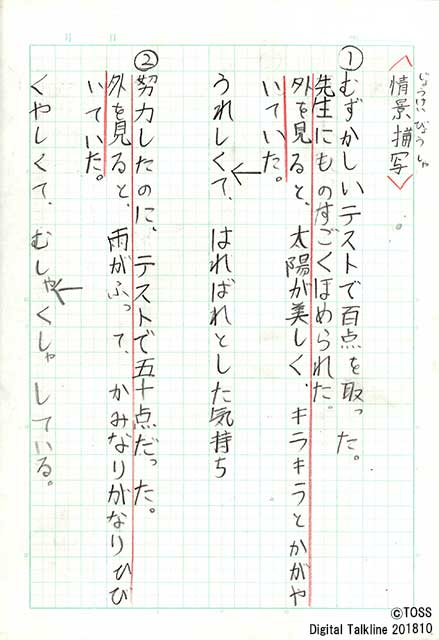 月 日
じょうけいびょうしゃ
〈情景描写〉
①むずかしいテストで百点を取った。
先生にものすごくほめられた。
外を見ると、太陽が美しく、キラキラとかがや
いていた。
うれしくて、はればれとした気持ち
②努力したのに、テストで五十点だった。
外を見ると、雨がふって、かみなりがなりひび
いていた。
くやしくて、むしゃくしゃしている。
©TOSS
Digital Talkline 201810